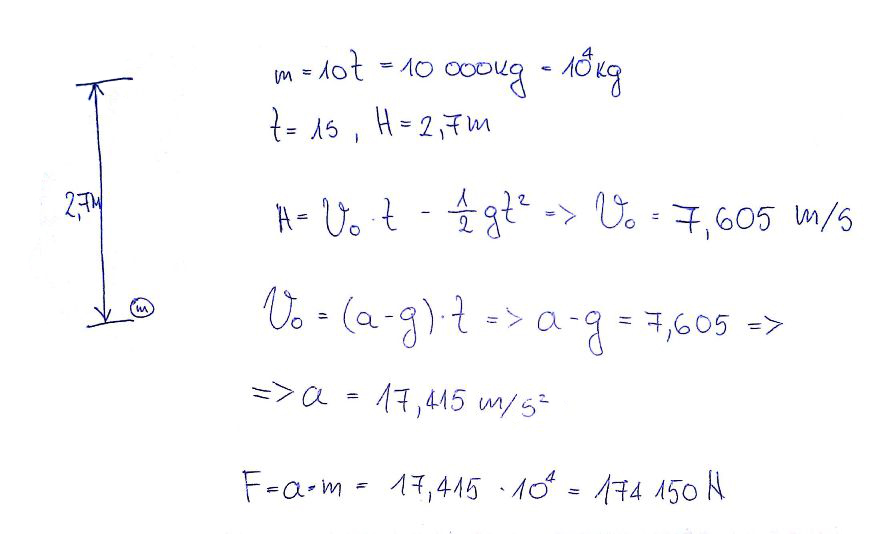 m = 10t = 10 000kg = 10⁴kg
t = 1s , H = 2,7m
2,7m
H = V₀ · t - 1/2 gt² => V₀ = 7,605 m/s
m
V₀ = (a-g)·t => a-g = 7,605 =>
=> a = 17,415 m/s²
F = a·m = 17,415 · 10⁴ = 174 150 N